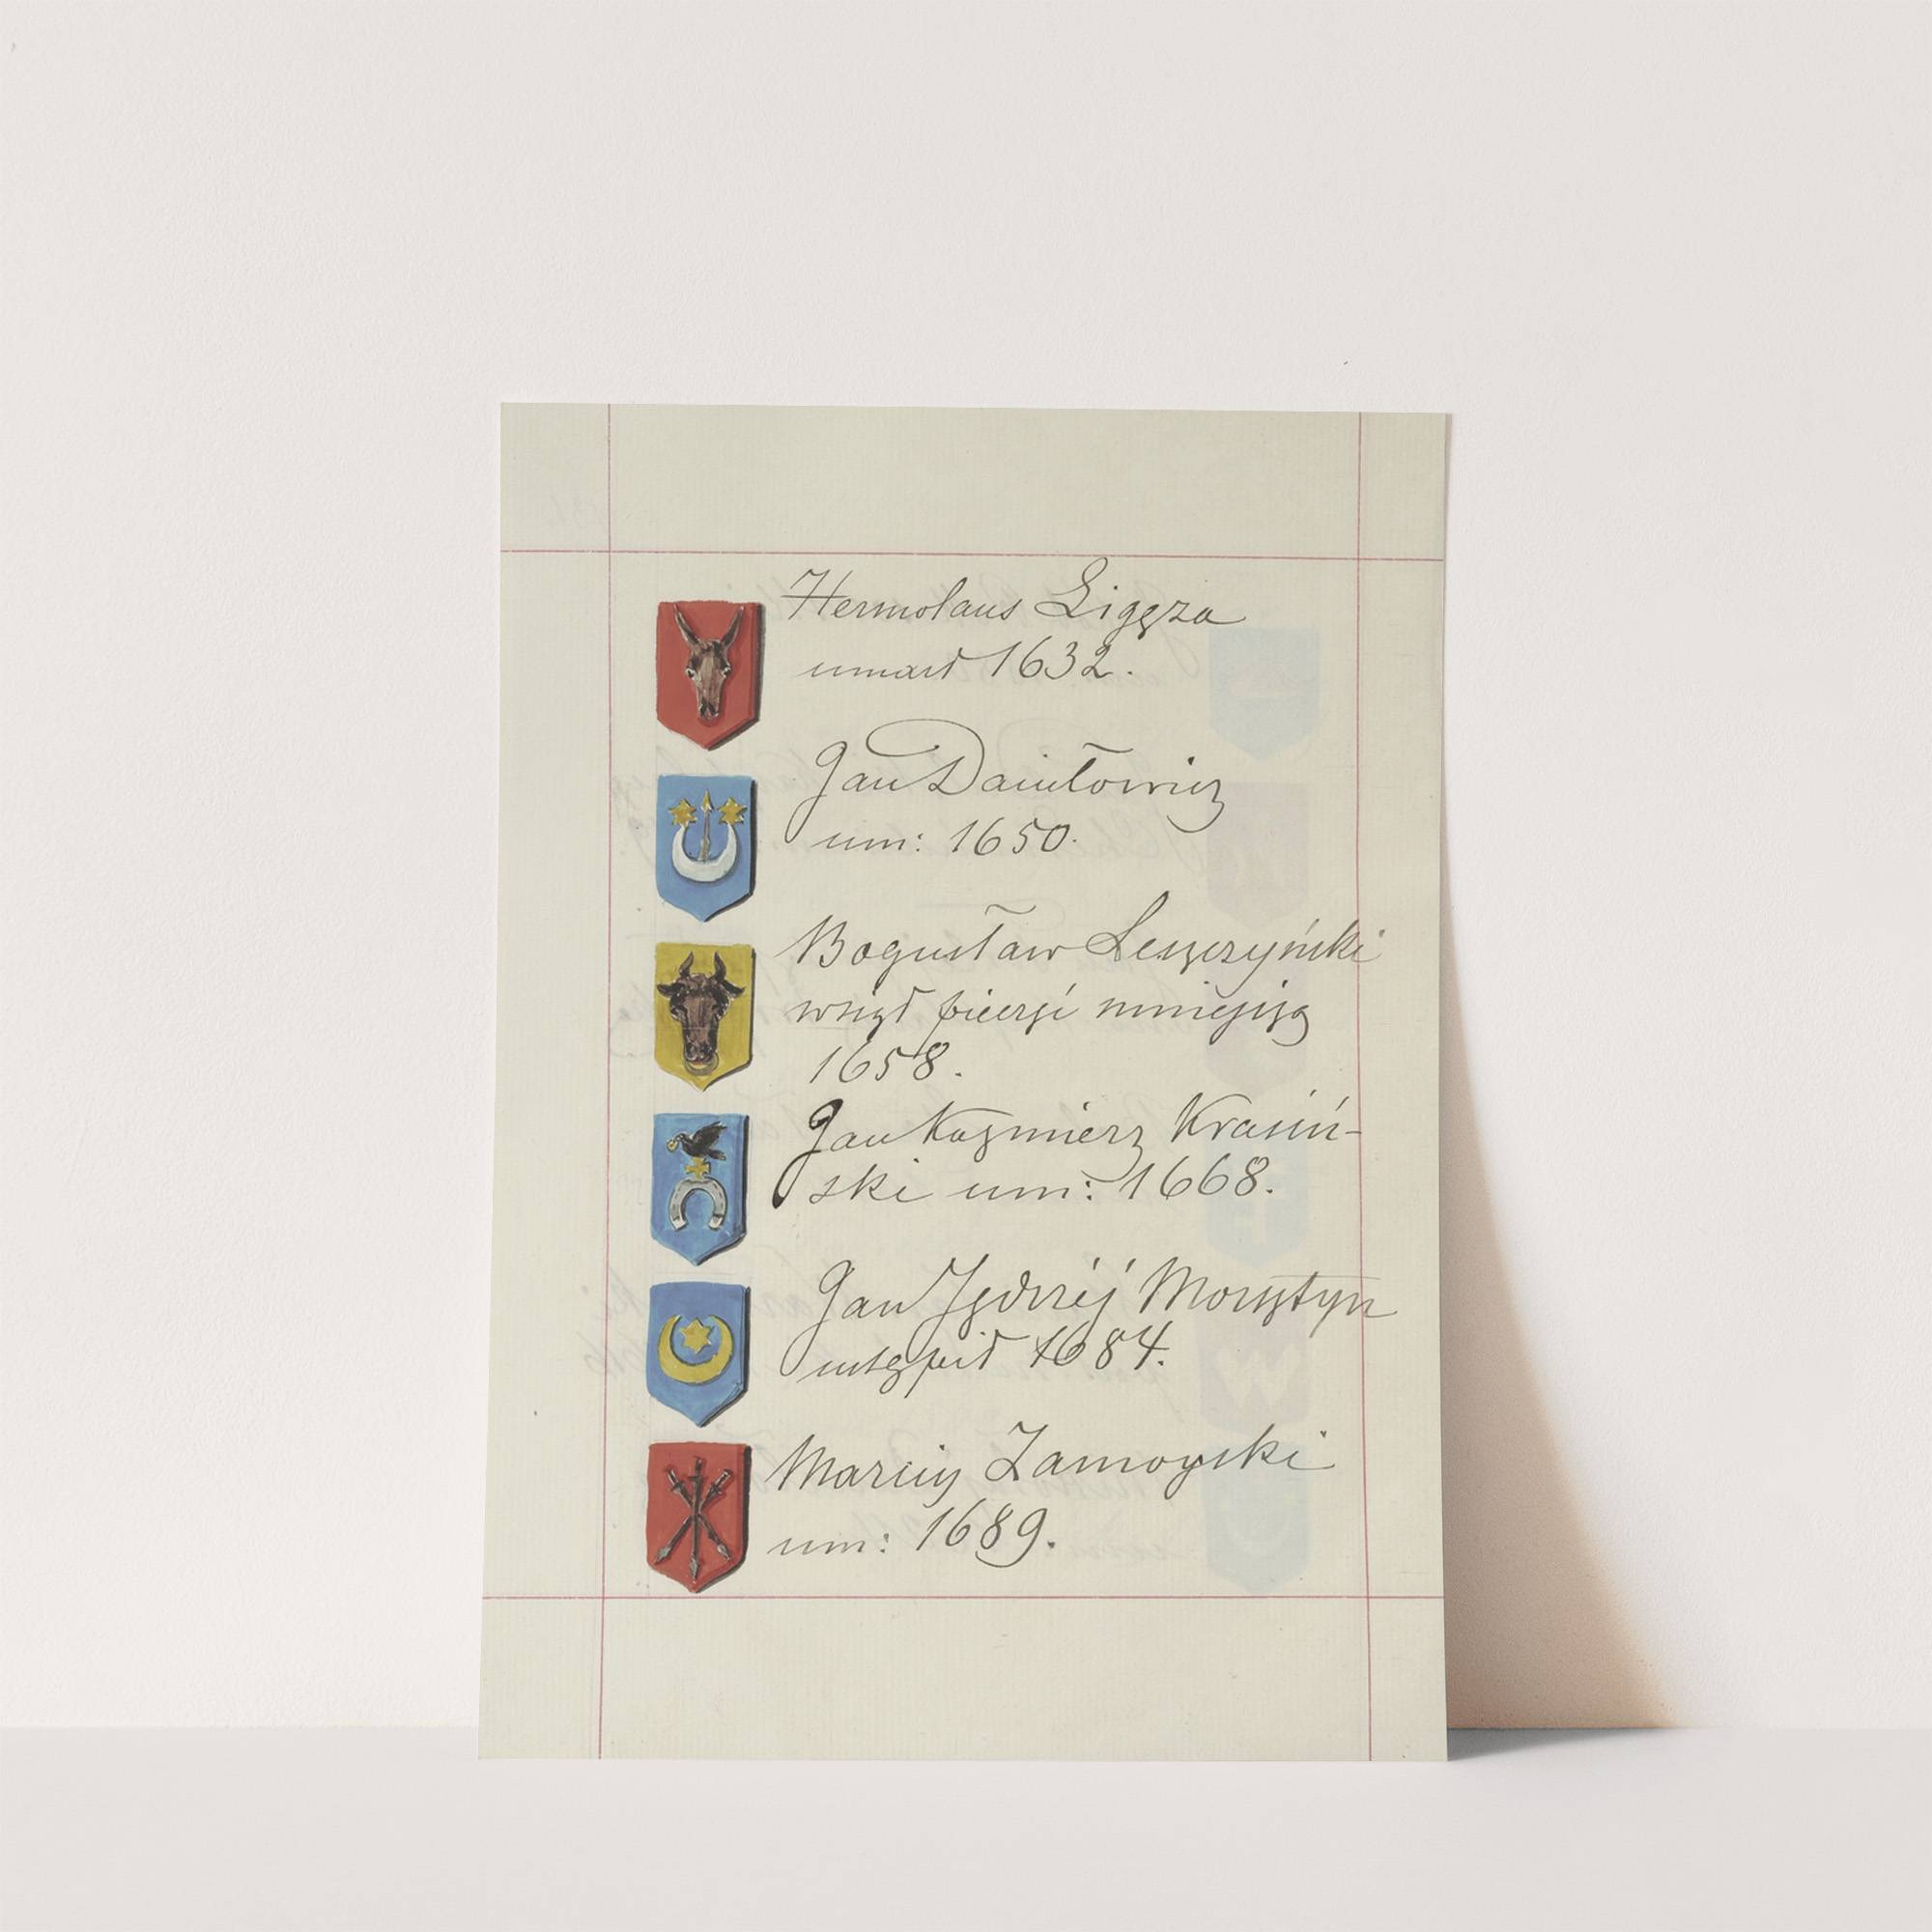 Hermolaus Ligęza
umarł 1632.
Jan Daniłowicz
um: 1650.
Bogusław Leszczyński
wziął pieczęć mniejszą
1658.
Jan Kazmierz Krasiń-
ski um: 1668.
Jan Jędrzéj Morsztyn
ustąpił 1684.
Marcin Zamoyski
um: 1689.